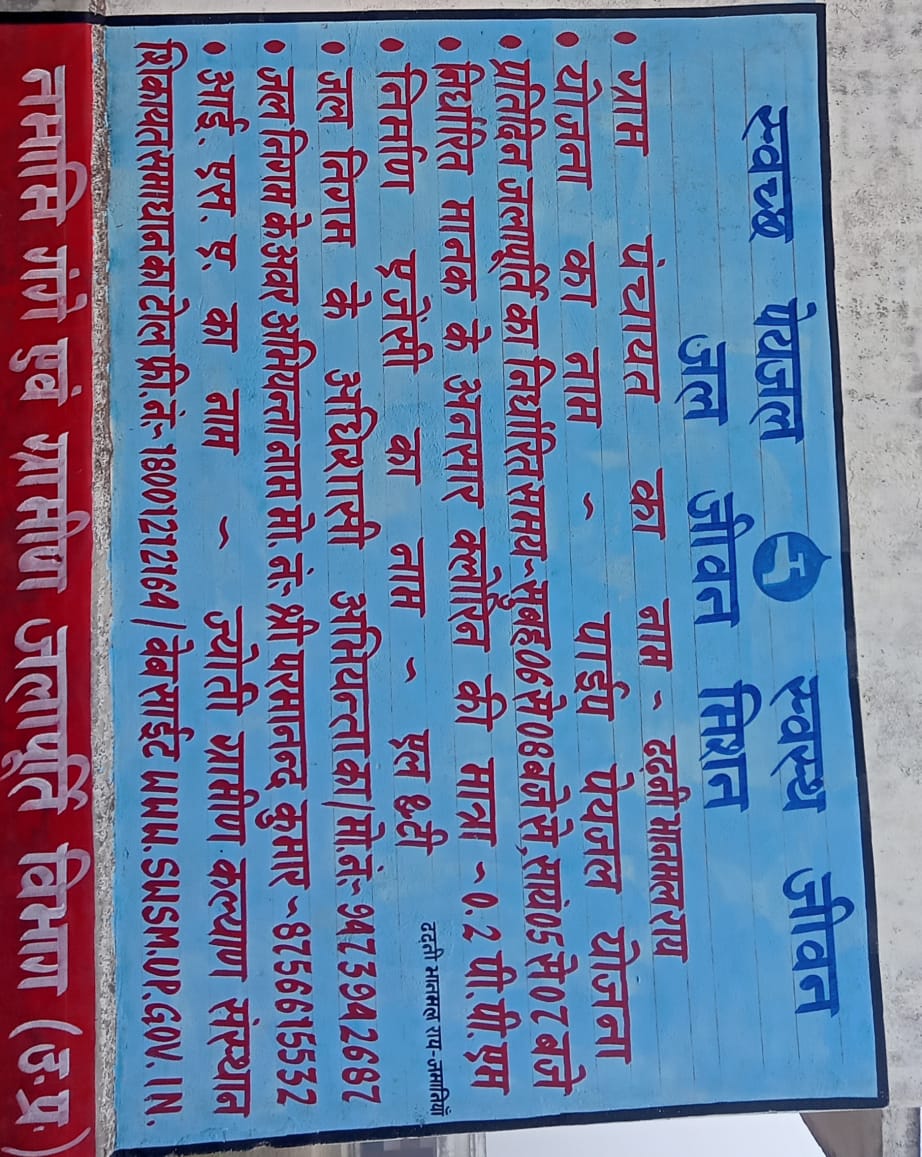 स्वच्छ पेयजल स्वस्थ जीवन
जल जीवन मिशन
• ग्राम पंचायत का नाम - ढढ़नी भानमल राय
• योजना का नाम - पाईप पेयजल योजना
• प्रतिदिन जलापूर्ति का निर्धारित समय - सुबह 06 से 08 बजे से, सायं 05 से 07 बजे
• निर्धारित मानक के अनुसार क्लोरिन की मात्रा - 0.2 पी.पी.एम
ढढ़नी भानमल राय-जमानियाँ
• निर्माण एजेंसी का नाम - एल &टी
• जल निगम के अधिशासी अभियन्ता का/मो.नं:- 9473942687
• जल निगम के अवर अभियन्ता नाम मो. नं:- श्री परमानन्द कुमार - 8756615532
• आई. एस. ए. का नाम - ज्योती ग्रामीण कल्याण संस्थान
शिकायत समाधान का टोल फ्री.नं:- 18001212164 / वेबसाईट WWW.SWSM.UP.GOV.IN.
नमामि गंगे एवं ग्रामीण जलापूर्ति विभाग (उ.प्र.)